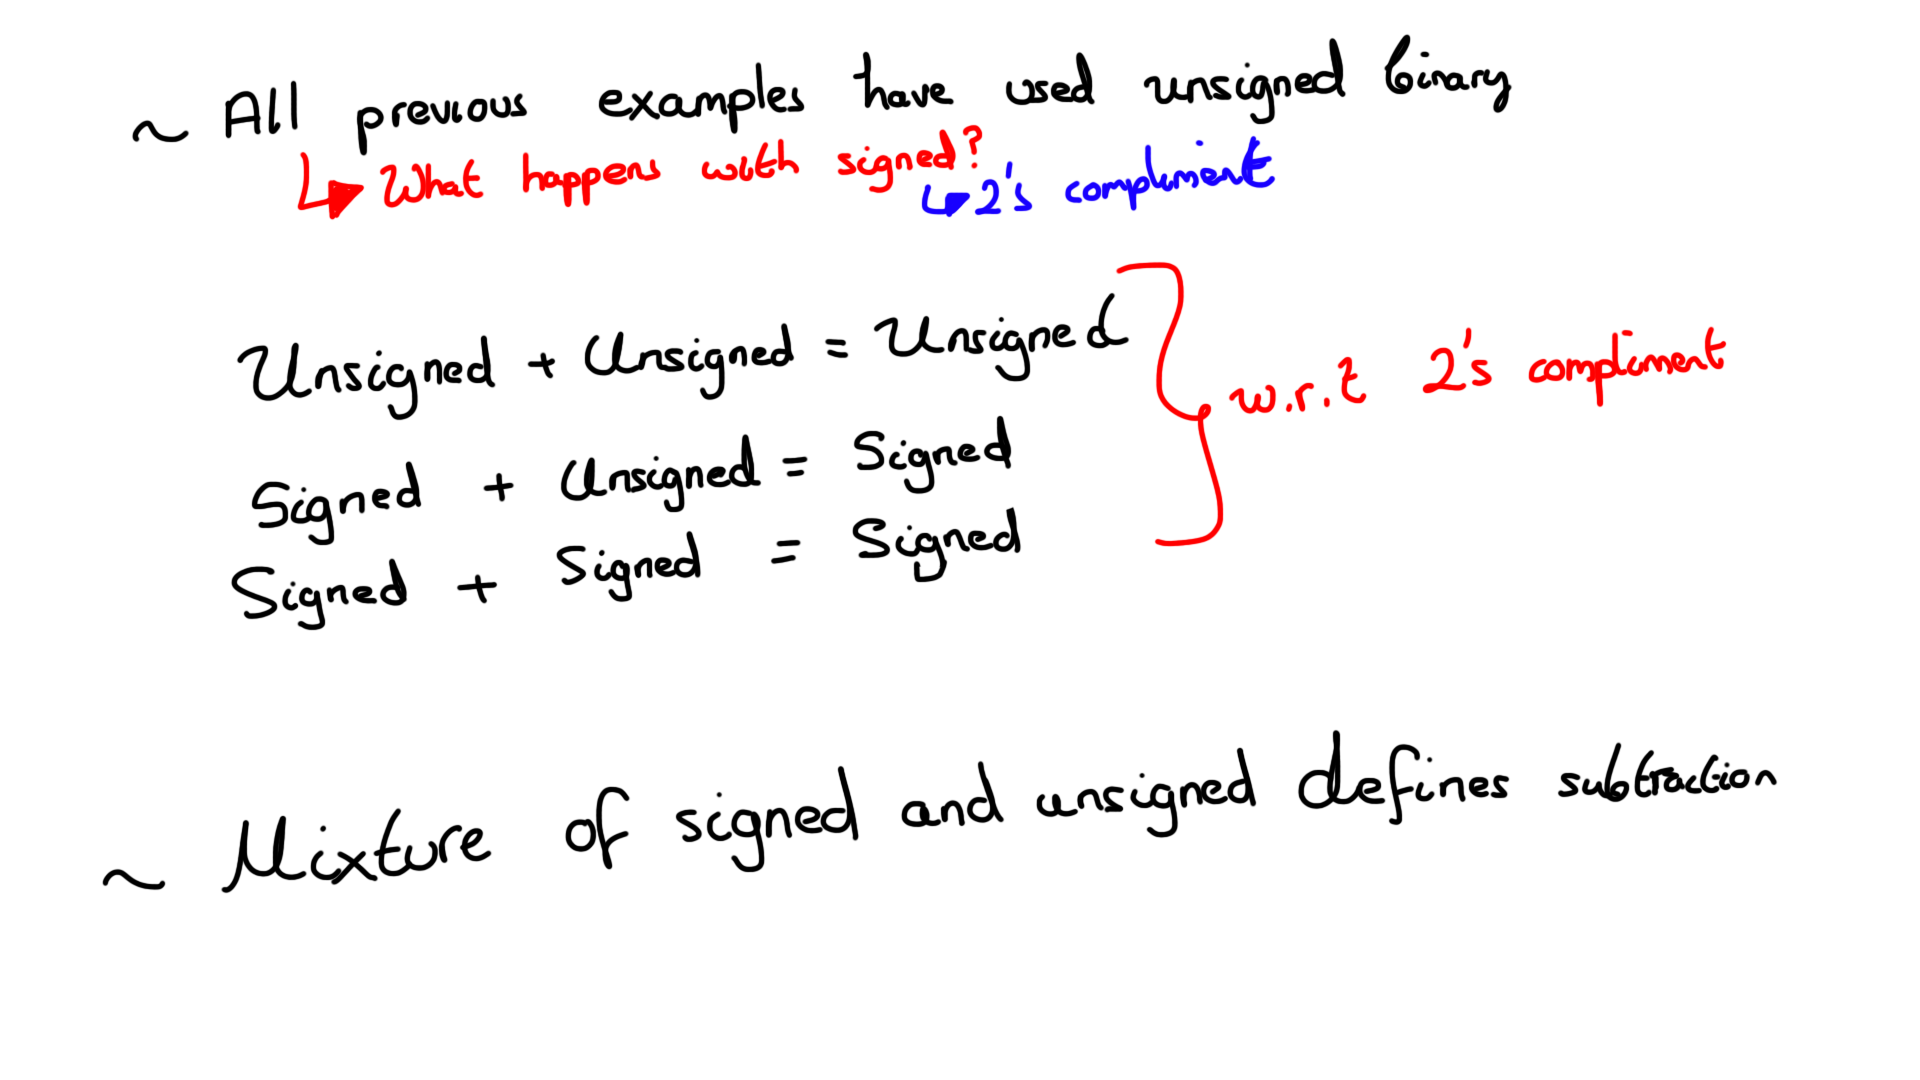 ~ All previous examples have used unsigned binary
What happens with signed?
2's compliment
Unsigned + Unsigned = Unsigned
w.r.t 2's compliment
Signed + Unsigned = Signed
Signed + Signed = Signed
~ Mixture of signed and unsigned defines subtraction